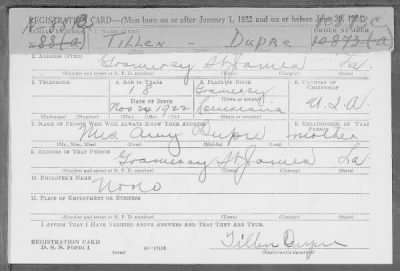 REGISTRATION CARD—(Men born on or after January 1, 1922 and on or before June 30, 1924)
88(a) Tillen — Dupre 10873(a)
2. ADDRESS (Print)
Gramercy St James La.
3. TELEPHONE 4. AGE IN YEARS 5. PLACE OF BIRTH 6. COUNTRY OF CITIZENSHIP
18 Gramercy
DATE OF BIRTH
Nov 24 1922 Louisiana U.S.A.
7. NAME OF PERSON WHO WILL ALWAYS KNOW YOUR ADDRESS 8. RELATIONSHIP OF THAT PERSON
Mrs Amy Dupre mother
(Mr., Mrs., Miss) (First) (Middle) (Last)
9. ADDRESS OF THAT PERSON
Gramercy St James La.
(Number and street or R. F. D. number) (Town) (County) (State)
10. EMPLOYER'S NAME
None
11. PLACE OF EMPLOYMENT OR BUSINESS
(Number and street or R. F. D. number) (Town) (County) (State)
I AFFIRM THAT I HAVE VERIFIED ABOVE ANSWERS AND THAT THEY ARE TRUE.
REGISTRATION CARD
D. S. S. Form 1
Tillen Dupre
(Registrant's signature)